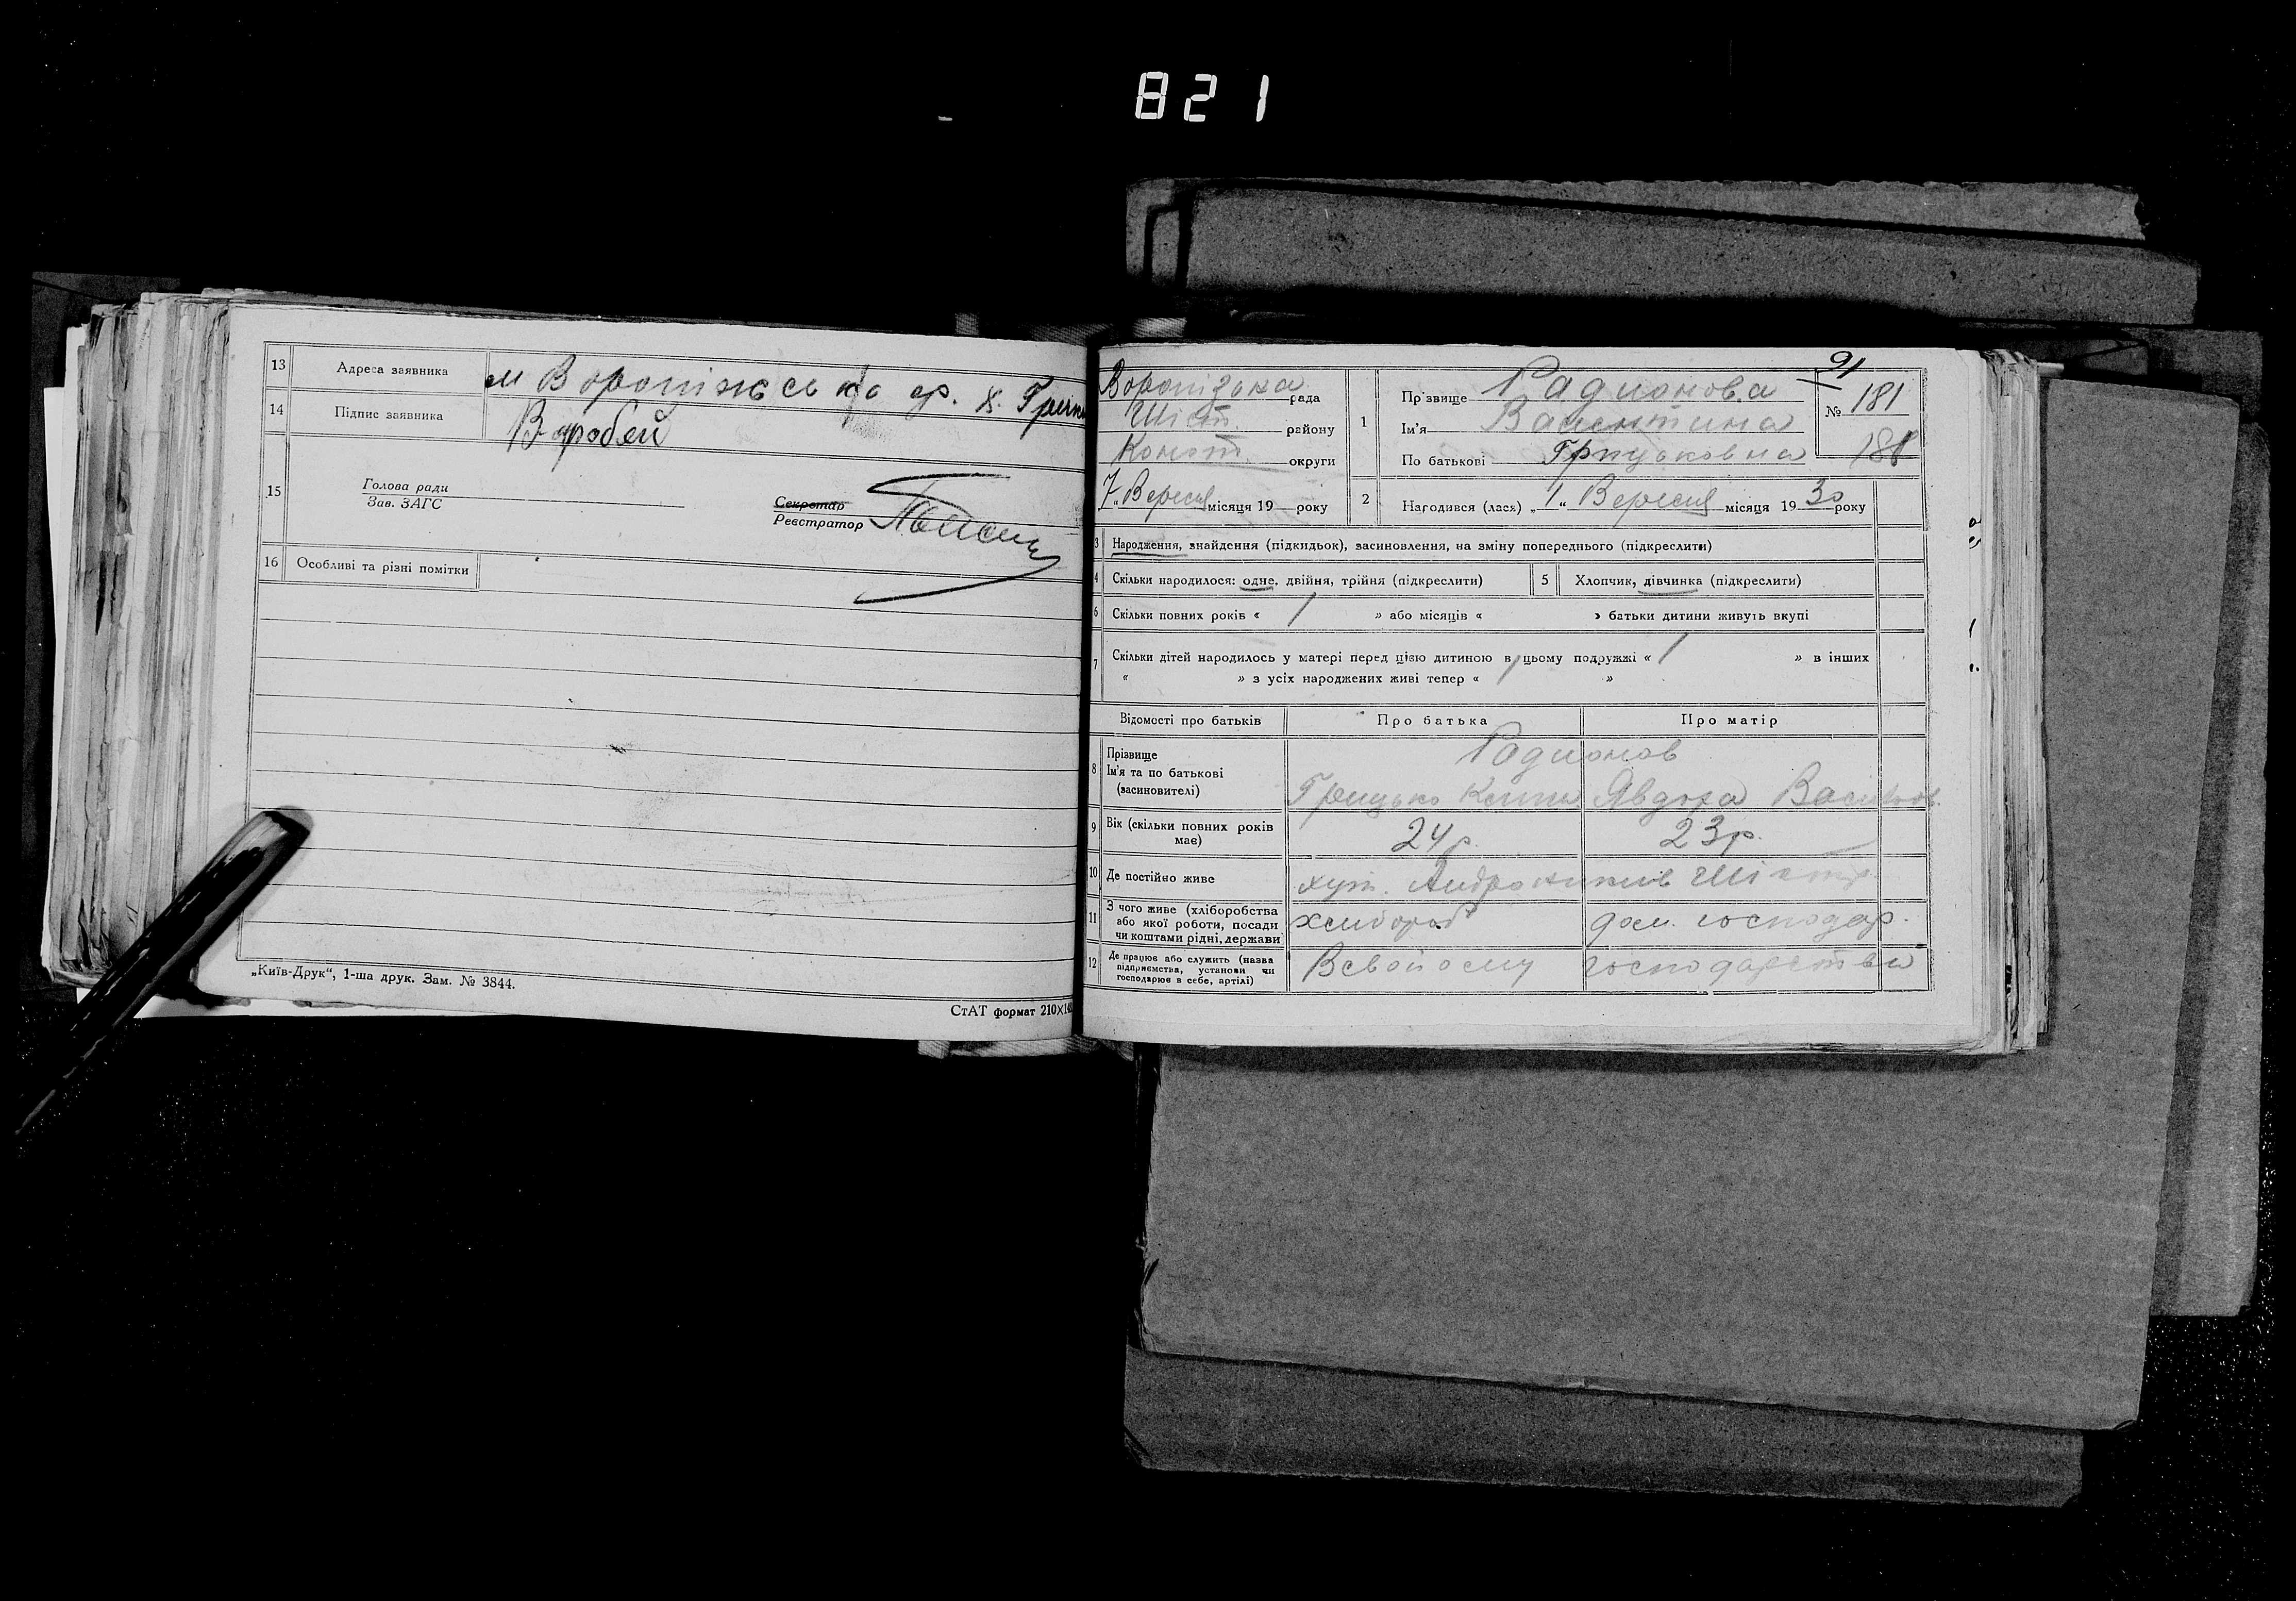 821
13 Адреса заявника м Вороніжська ср. х.
14 Підпис заявника Воробей
15 Голова ради
Зав. ЗАГС
Секретар
Реєстратор
16 Особливі та різні помітки
„Київ-Друк“, 1-ша друк. Зам. № 3844.
СтАТ формат 210×148
91
Воронізька рада
Шіст. району
Коноп. округи
7 „ Вересня місяця 19 року
1 Прізвище Радионова
Ім'я Валентина
По батькові Грицьковна
№ 181
181
2 Народився (лася) „1“ Вересня місяця 1930 року
3 Народження, знайдення (підкидьок), засиновлення, на зміну попереднього (підкреслити)
4 Скільки народилося: одне, двійня, трійня (підкреслити) 5 Хлопчик, дівчинка (підкреслити)
6 Скільки повних років « 1 » або місяців « » батьки дитини живуть вкупі
7 Скільки дітей народилось у матері перед цією дитиною в цьому подружжі « 1 » в інших
« » з усіх народжених живі тепер « 1 »
Відомості про батьків Про батька Про матір
8 Прізвище
Ім'я та по батькові
(засиновителі)
Радионов
Грицько Явдоха Васильов.
9 Вік (скільки повних років
має)
24 р. 23 р.
10 Де постійно живе хут.
11 З чого живе (хліборобства
або якої роботи, посади
чи коштами рідні, держави
хлибороб дом. господар.
12 Де працює або служить (назва
підприємства, установи чи
господарює в себе, артілі)
В свойому господарстви